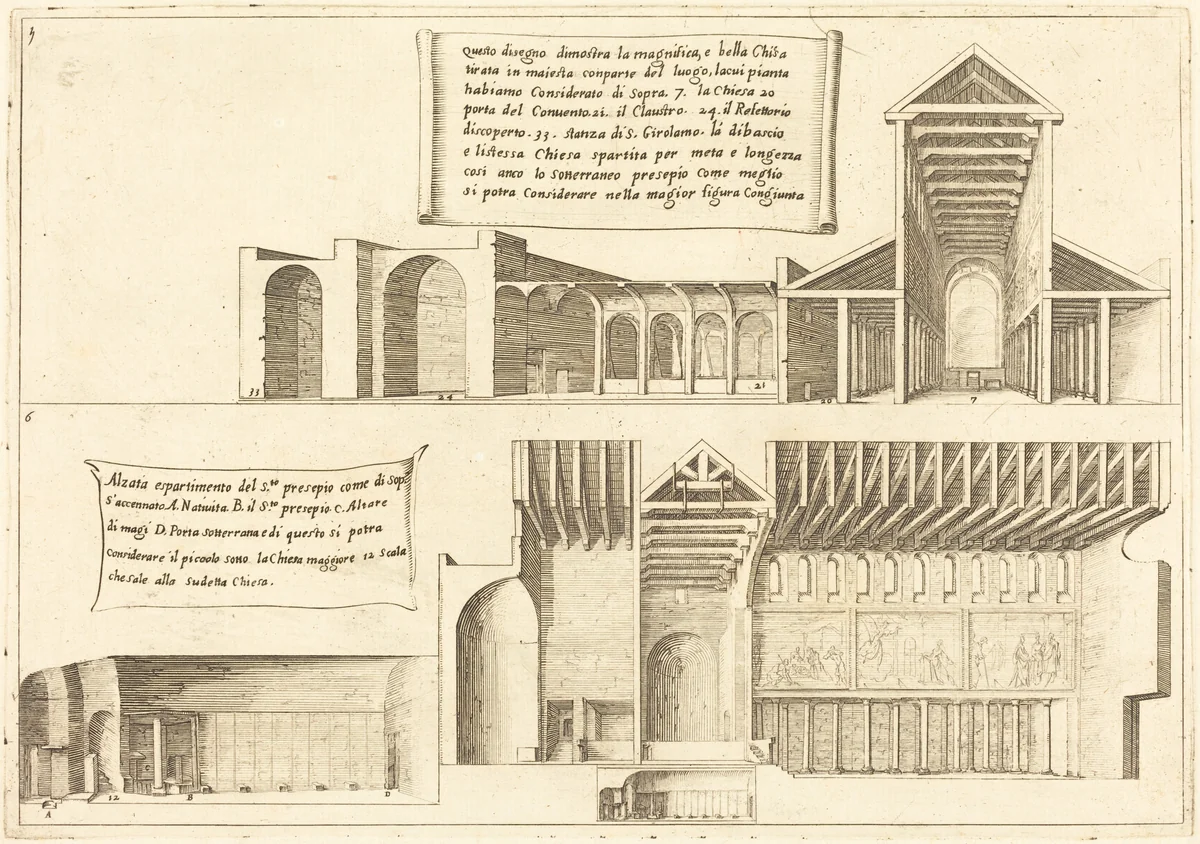 5
Questo disegno dimostra la magnifica, e bella Chiſa
tirata in maiesta conparte del luogo, lacui pianta
habiamo Considerato di Sopra. 7. la Chiesa 20
porta del Conuento. 21. il Claustro. 24. il Refettorio
discoperto. 33. stanza di S. Girolamo. la dibascio
e listessa Chiesa spartita per meta e longezza
cosi anco lo Sotterraneo presepio Come meglio
si potra Considerare nella magior figura Congiunta
33
24
21
20
7
6
Alzata espartimento del S.to presepio come di Sop.a
S'accennato A. Natiuita. B. il S.to presepio. C. Altare
di magi D. Porta Sotterranea e di questo si potra
Considerare il piccolo sotto la Chiesa maggiore 12 Scala
che sale alla Sudetta Chiesa.
C
12
B
D
A